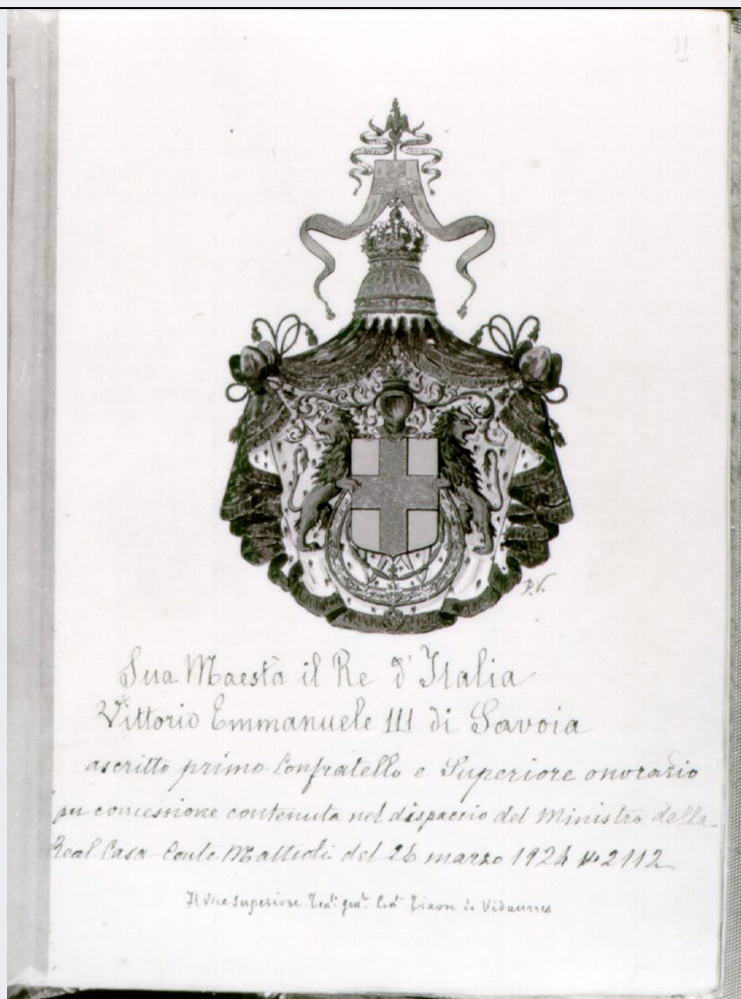 31
P.V.
Sua Maestà il Re d'Italia
Vittorio Emmanuele III di Savoia
ascritto primo Confratello e Superiore onorario
per concessione contenuta nel dispaccio del Ministro della
Real Casa Conte Mattioli del 26 marzo 1924 No 2112
Il Vice Superiore Ten. gen. Tixon de Vidaurres